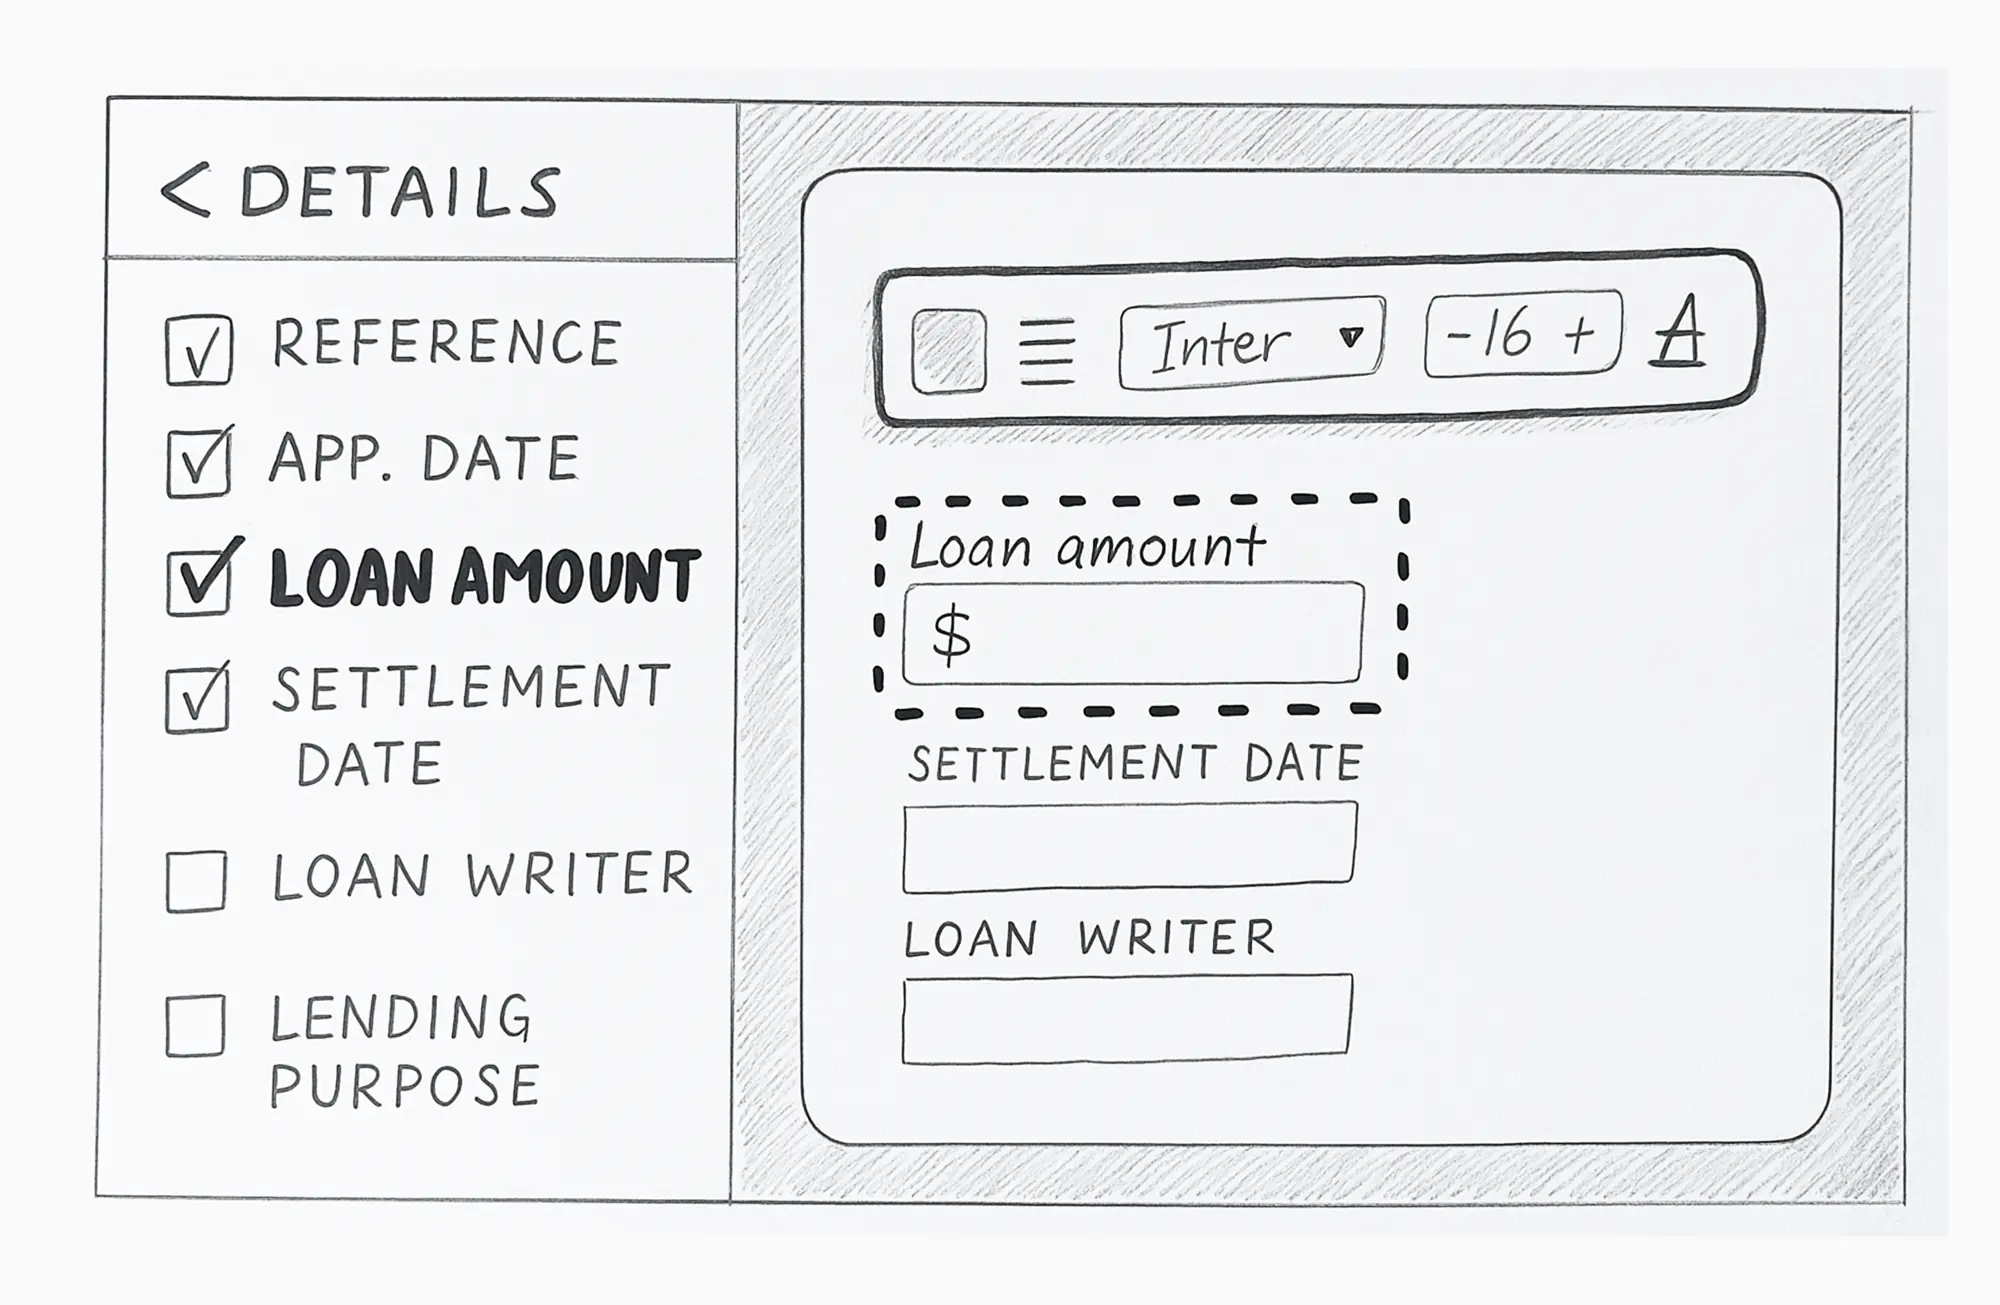 < DETAILS
REFERENCE
APP. DATE
LOAN AMOUNT
SETTLEMENT
DATE
LOAN WRITER
LENDING
PURPOSE
Inter ▼ -16 + A
Loan amount
$
SETTLEMENT DATE
LOAN WRITER